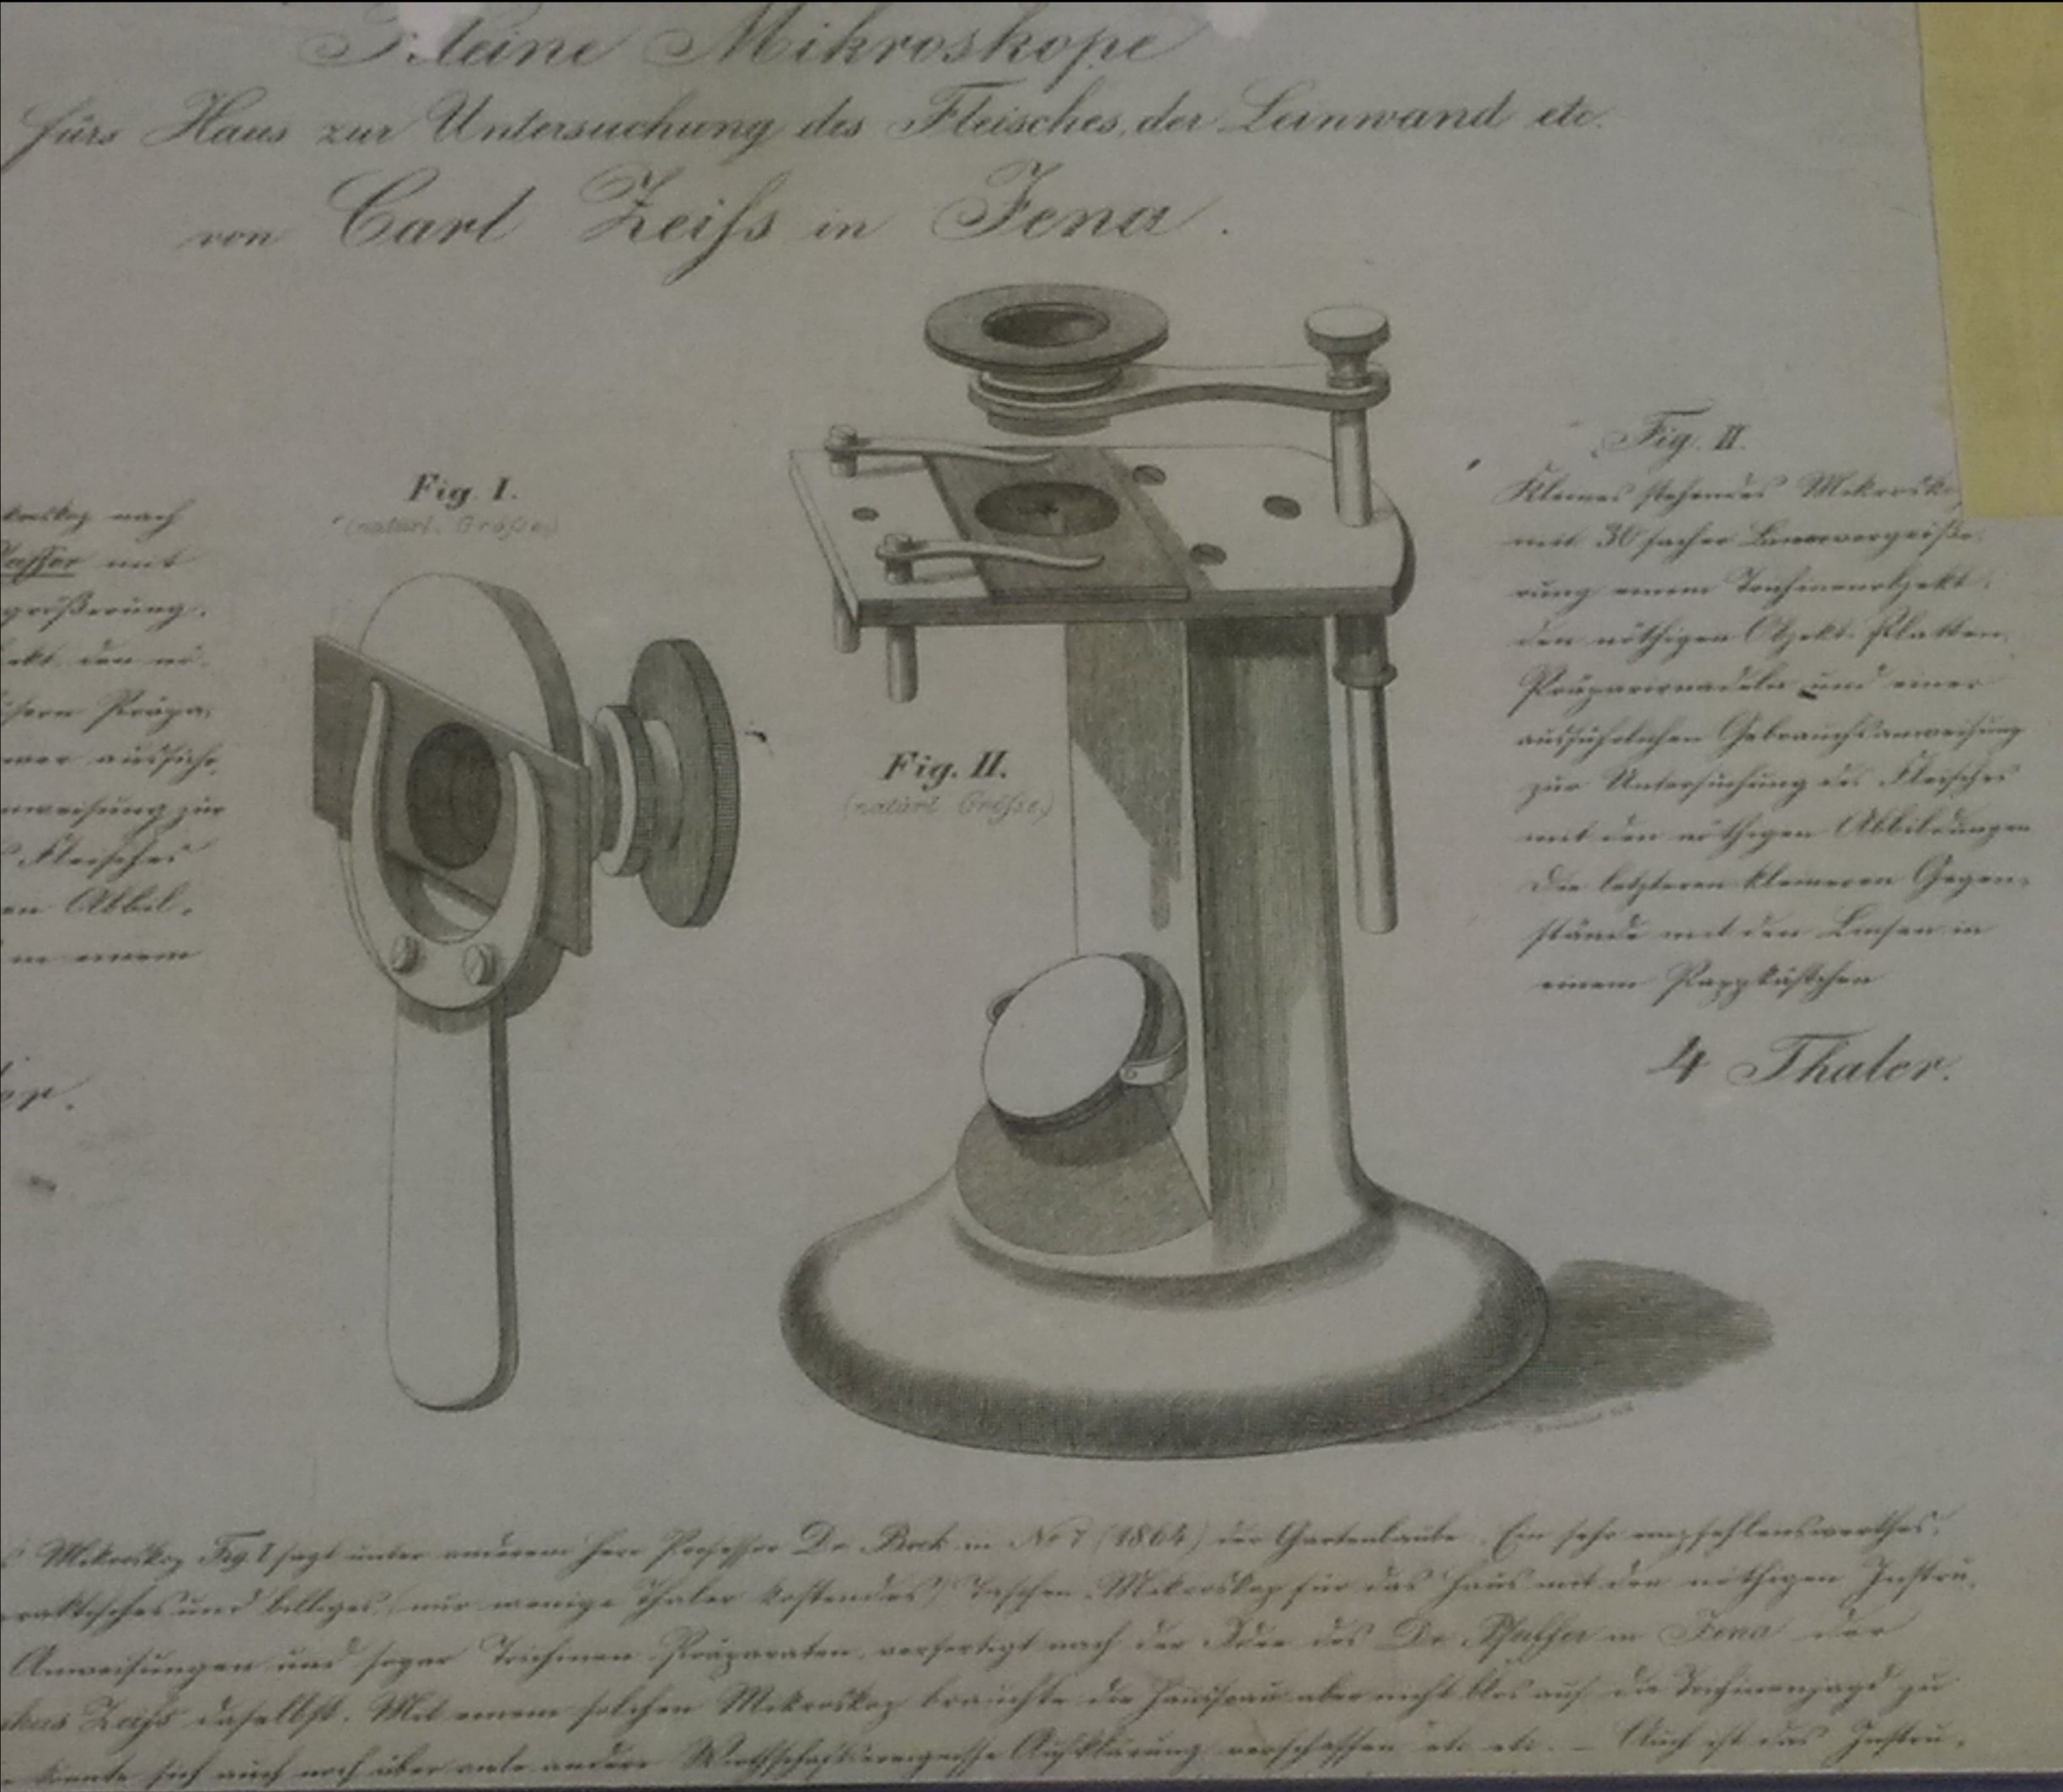 Kleine Mikroskope
fürs Haus zur Untersuchung des Fleisches, der Leinwand etc.
von Carl Zeiſs in Jena.
Fig. I.
(natürl. Gröſse)
nach
mit
größerung.
ekt den nö-
Präpa-
ner ausführ
nweisung zur
Fleisches
en Abbil-
in einem
er.
Fig. II.
(natürl. Gröſse)
Fig. II.
Kleines stehendes Mikrosko
mit 30 facher Linearvergröße-
rung einem Trichinenobjekt,
den nöthigen Objekt-Platten,
Präpariernadeln und einer
ausführlichen Gebrauchsanweisung
zur Untersuchung des Fleisches
mit den nöthigen Abbildungen
Die letzteren kleineren Gegen-
stände mit den Linsen in
einem Pappkästchen
4 Thaler.
Mikroskop Fig. I sagt unter anderem Herr Professor Dr. Bock in No 7 (1864) der Gartenlaube. Ein sehr empfehlenswerthes,
praktisches und billiges, (nur wenige Thaler kostendes) Taschen-Mikroskop für das Haus mit den nöthigen Instru-
Anweisungen und sogar Trichinen-Präparaten, verfertigt nach der Idee des Dr. in Jena der
Zeiſs daselbst. Mit einem solchen Mikroskop brauchte die Hausfrau aber nicht blos auf die Trichinenjagd zu
könnte sich auch noch über viele andere Aufklärung verschaffen etc etc. – Auch ist das Instru-